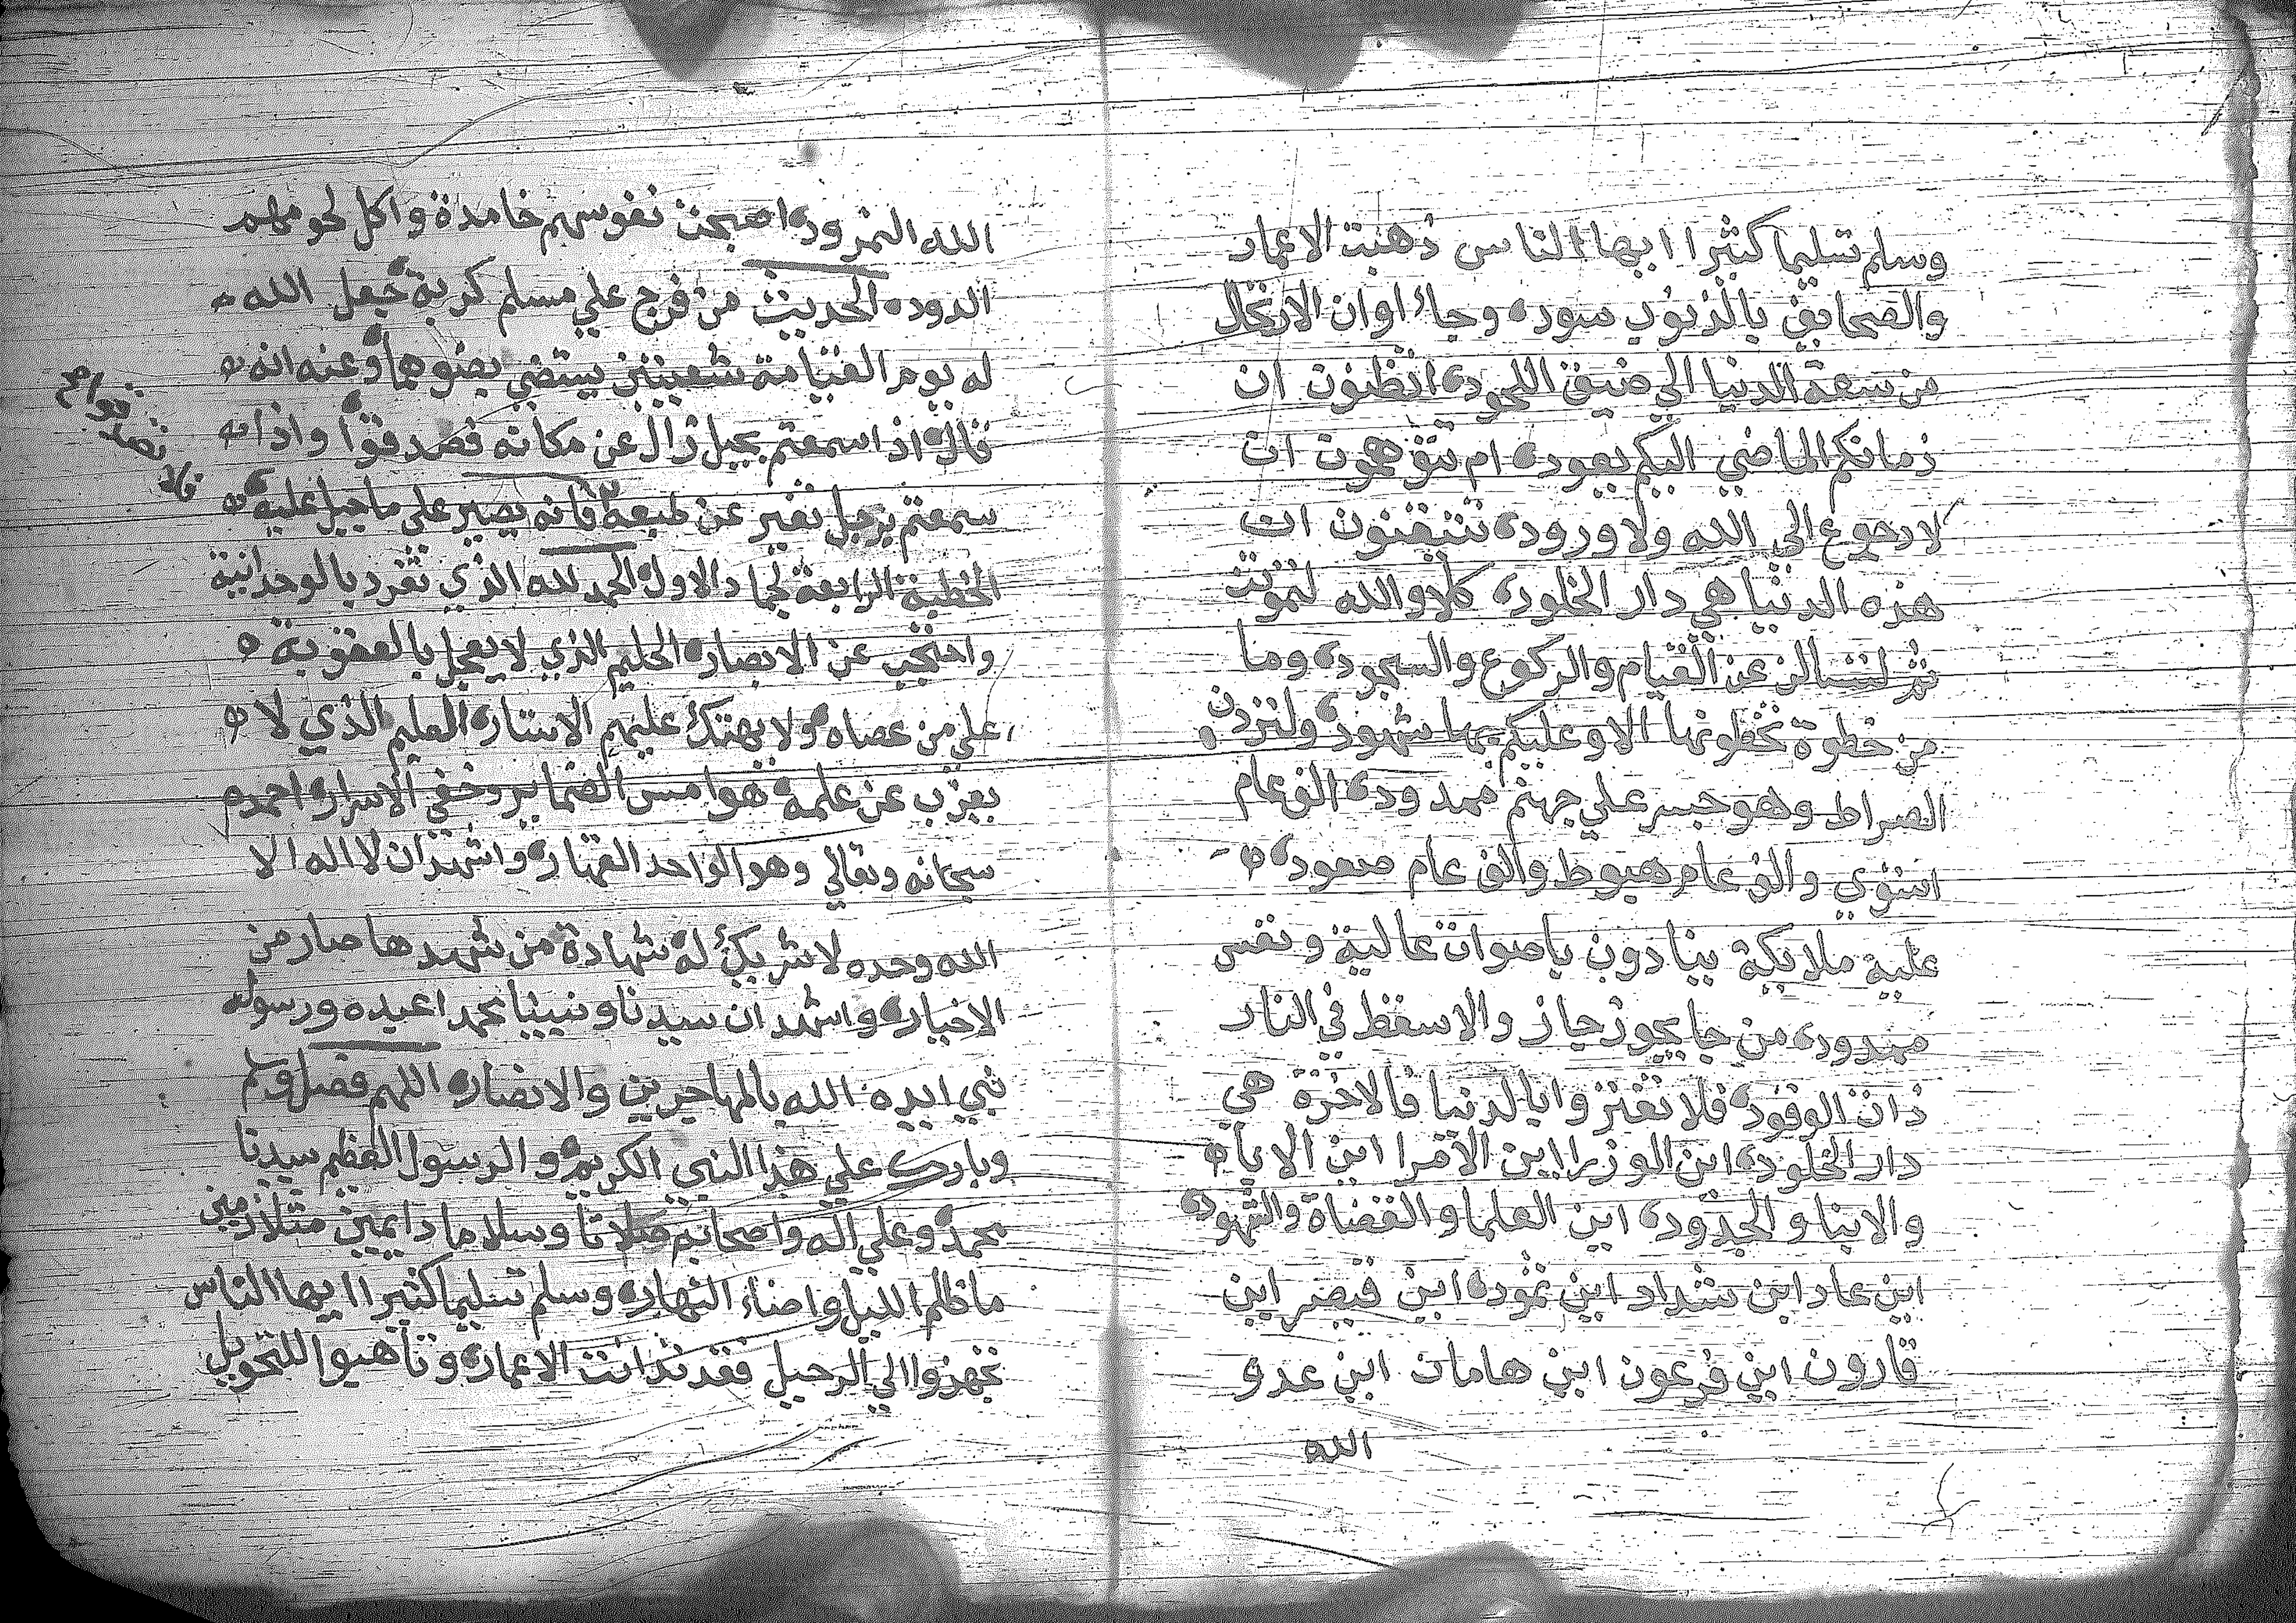 وسلم تسليما كثيرا ايها الناس ذهبت الاعمار
والصحايف بالذنوب سوده وجاء اوان الارتحال
من سعة الدنيا الي ضيق اللحوده اتظنون ان
زمانكم الماضي اليكم يعوده ام تتوهمون ان
لا رجوع الي الله ولا وروده تتيقنون ان
هذه الدنيا هي دار الخلوده كلا والله لتموتن
ثم لتسالن عن القيام والركوع والسجوده وما
من خطوة تخطونها الا وعليكم بها شهوده ولتردن
الصراط وهو جسر علي جهنم ممدوده الف عام
استوي والف عام هبوط والف عام صعوده
عليه ملايكة ينادون باصوات عالية ونفس
من جا يجوز جاز والا سقط في النار
ذات الوقوده فلا تغتروا بالدنيا فالاخرة هي
دار الخلوده اين الوزرا اين الامرا اين الابا
والابنا والجدوده اين العلما والقضاة والشهوده
اين عاد اين شداد اين ثموده اين قيصر اين
قارون اين فرعون اين هامان اين عدو
الله
الله النمروده اصبحت نفوسهم خامدة واكل لحومهم
الدوده الحديث من فرج علي مسلم كربة جعل الله
له يوم القيامة شعبتين يستضي بضوهما وعنه انه
قال اذا سمعتم بجبل زال عن مكانه فصدقوا واذا
سمعتم برجل تغير عن طبعه فانه يصير علي ما جبل عليه
فلا تصدقوا
الخطبة الرابعة لجماد الاول الحمد لله الذي تفرد بالوحدانية
واحتجب عن الابصاره الحليم الذي لا يعجل بالعقوبة
علي من عصاه ولا يهتك عليهم الاستاره العليم الذي لا
يعزب عن علمه هوامس الضماير وخفي الاسراره احمده
سبحانه وتعالي وهو الواحد القهاره واشهد ان لا اله الا
الله وحده لا شريك له شهادة من شهدها صار من
الاخياره واشهد ان سيدنا ونبينا محمدا عبده ورسوله
نبي ايده الله بالمهاجرين والانصاره اللهم فصل وسلم
وبارك علي هذا النبي الكريم والرسول العظيم سيدنا
محمد وعلي اله واصحابه صلاتا وسلاما دايمين متلازمين
ما اظلم الليل واضاء النهاره وسلم تسليما كثيرا ايها الناس
تجهزوا الي الرحيل فقد تدانت الاعماره وتاهبوا للتحويل